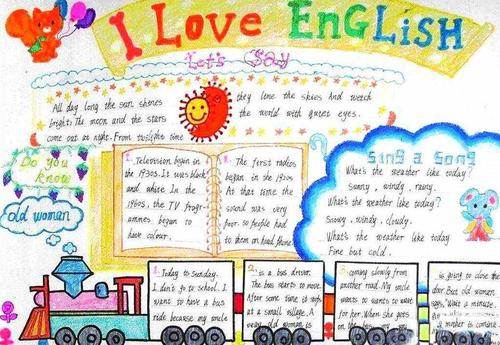 I Love EnGLiSH
Let's Say
All day long the sun shines
bright. The moon and the stars
come out at night. From twilight time
they love the skies And watch
the world with quiet eyes.
Do you
know
old woman
1. Television began in
the 1930s. It was black
and white. In the
1960s, the TV progr-
ammes began to
have colour.
2. The first radios
began in the 1920s
At that time the
sound was very
poor. so people had
to them on head phone
Sing a Song
What's the weather like today?
Sunny, windy, rainy.
What's the weather like today?
Snowy, windy, cloudy.
What's the weather like today
Fine but cold.
1. Today to sunday.
I don't go to school. I
want to have a bus
ride because my uncle
2. is a bus driver.
The bus starts to move.
After some time it stops
at a small village. A
very old woman is
3. coming slowly from
another road. My uncle
wants to wants to wait
for her. When she gets
on the bus my
is going to close the
door. But old woman
says, Wait a minute.
mother is coming.